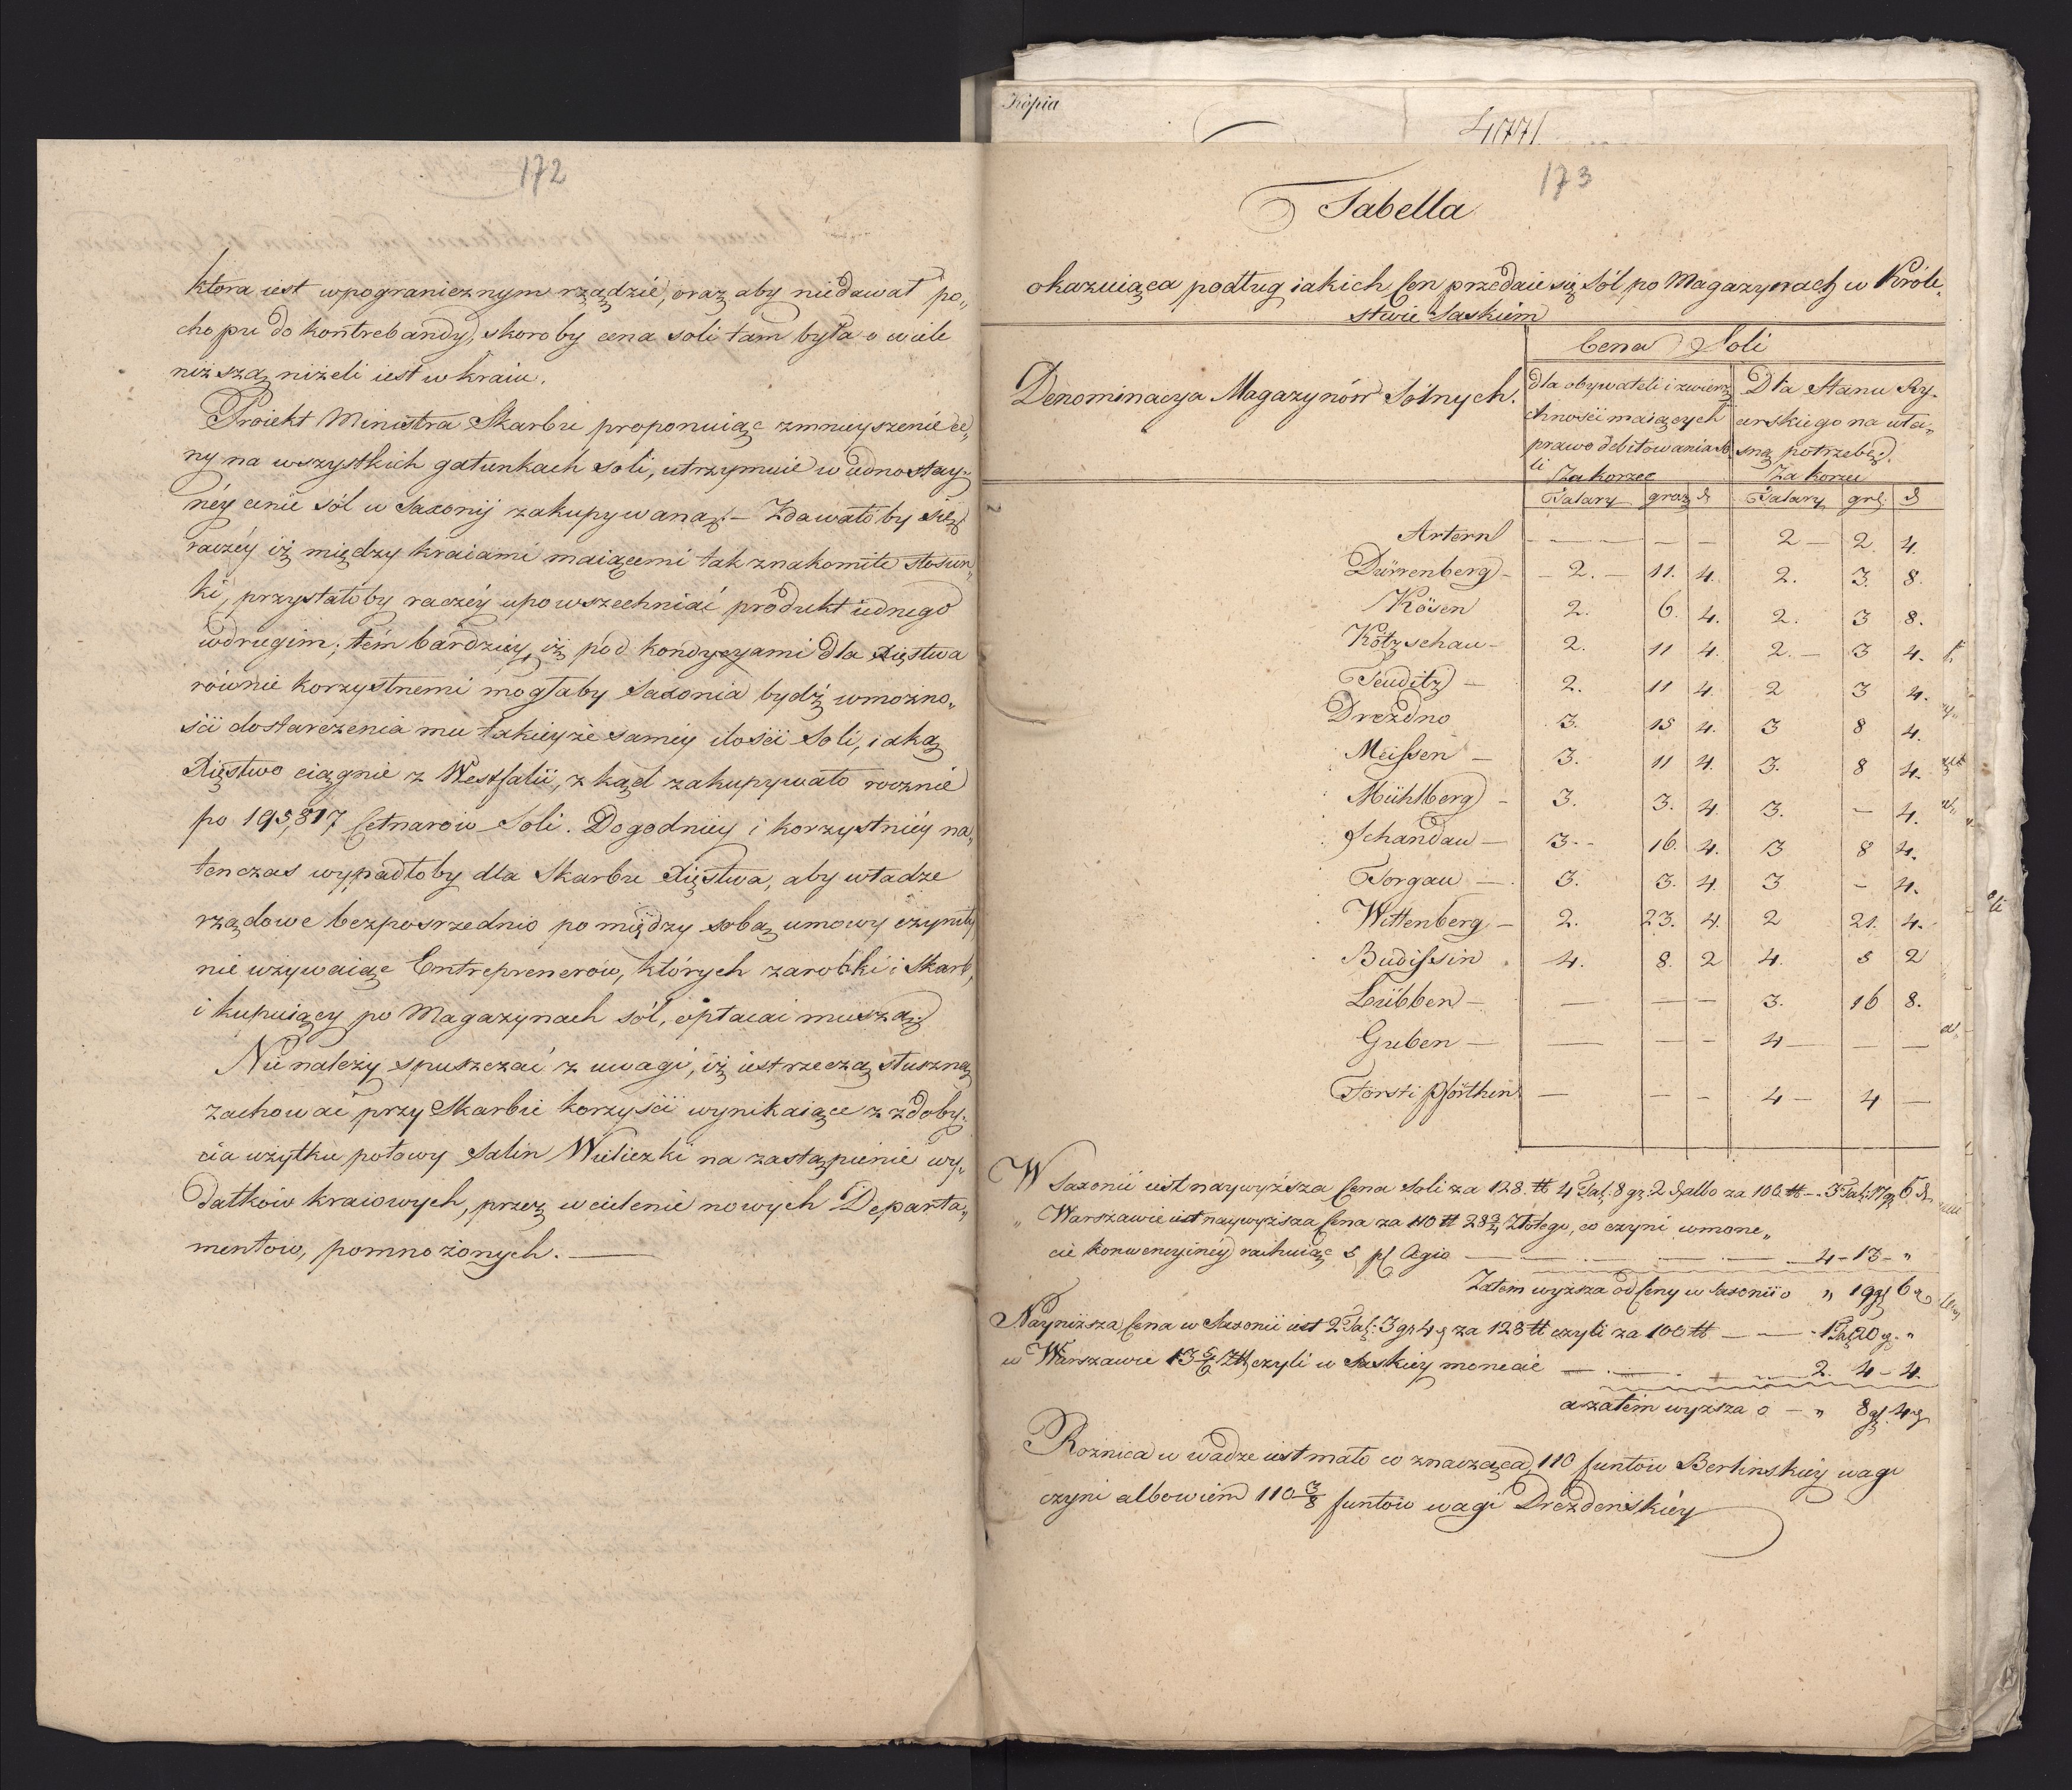 172
ktora iest wpogranicznym rządzie, oraz aby niedawał po„
chopu do kontrebandy, skoroby cena soli tam była o wiele
niższą niżeli iest w kraiu.
Proiekt Ministra Skarbu proponuiąc zmnieyszenie ce„
ny na wszystkich gatunkach soli, utrzymuie w iednostay„
néy cenie sól w Saxonij zakupywaną. – Zdawałoby się
raczéy iż między kraiami maiącemi tak znakomite stosun„
ki, przystałoby raczéy upowszechniać produkt iednego
wdrugim; tém bardziéy, iż pod kondycyami dla Xięstwa
równie korzystnemi mogłaby Saxonia bydź wmożno„
ści dostarczenia mu takiéyże saméy ilości Soli, iaką
Xięstwo ciągnie z Westfalii, z kąd zakupywało rocznie
po 195,817 Cetnarow Soli. Dogodniéy i korzystniéy na„
tenczas wypadłoby dla Skarbu Xięstwa, aby władze
rządowe bezposrzednio pomiędzy sobą umowy czyniły,
nie używaiąc Entreprenerów, których zarobki i Skarb,
i kupuiący po Magazynach sól, opłacać muszą.
Nie należy spuszczać z uwagi, iż iest rzeczą słuszną
zachować przy Skarbie korzyści wynikaiące z zdoby„
cia użytku połowy Salin Wieliczki na zastąpienie wy„
datków kraiowych, przez wcielenie nowych Departa„
mentow, pomnożonych. —
Kopia
4771
173
Tabella
okazuiąca podług iakich Cen przedaie się Sól po Magazynach w Króle„
stwie Saskiém
Denominacya Magazynów Sólnych.
Cena Soli
dla obywateli i zwierz„
chności maiących
prawo debitowania so„
li
Za korzec
Dla Stanu Ry„
cerskiego na wła„
sną potrzebę.
Za korzec
Talary grosz ₰ Talary grl. ₰
Artern — — — 2 — 2. 4.
Dürrenberg – 2. – 11. 4. 2. 3. 8.
Kösen 2. 6. 4. 2. 3 8.
Kötzschau – 2. 11 4. 2. – 3 4.
Teuditz – 2. 11 4. 2 3 4.
Drezdno 3. 15 4. 3 8 4.
Meissen – 3. 11 4. 3. 8 4.
Mühlberg – 3. 3. 4. 3. – 4.
Schandau – 3. – 16. 4. 3 8 4.
Torgau – 3. 3. 4. 3 – 4.
Wittenberg – 2. 23. 4. 2 21. 4.
Budissin 4. 8. 2 4. 8 2
Lübben – — — — 3. 16 8.
Guben – — — – 4 — — —
Forst i Pförthen — – – 4 – 4 —
W Saxonii iest naywyższa Cena Soli za 128. ℔ 4 Tal: 8 gr: 2 ₰ albo za 100 ℔ – 3 Tal: 17 gr 6 ₰
„ Warszawie iest naywyższa Cena za 110 ℔ 28 3/4 Złotego, co czyni wmone„
cie konwencyinéy rachuiąc 5 pC Agio — 4 – 13 – „
Zatem wyższa od Ceny w Saxonii o „ 19 gl 6 ₰
Nayniższa Cena w Saxonii iest 2 Tal: 3 gr 4 ₰ za 128 ℔ czyli za 100 ℔ — 1 Tal 20 g. „
w Warszawie 13 5/6 Zł. czyli w Saskiéy monecie — 2. 4 – 4.
a zatém wyższa o – „ 8 gl. 4 ₰
Roznica w wadze iest mało co znacząca, 110 funtow Berlinskiéy wagi
czyni albowiem 110 3/8 funtow wagi Drezdeńskiéy